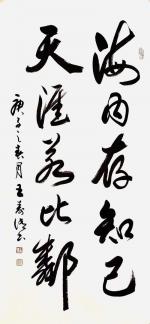 海内存知己
天涯若比邻
庚子之春月王